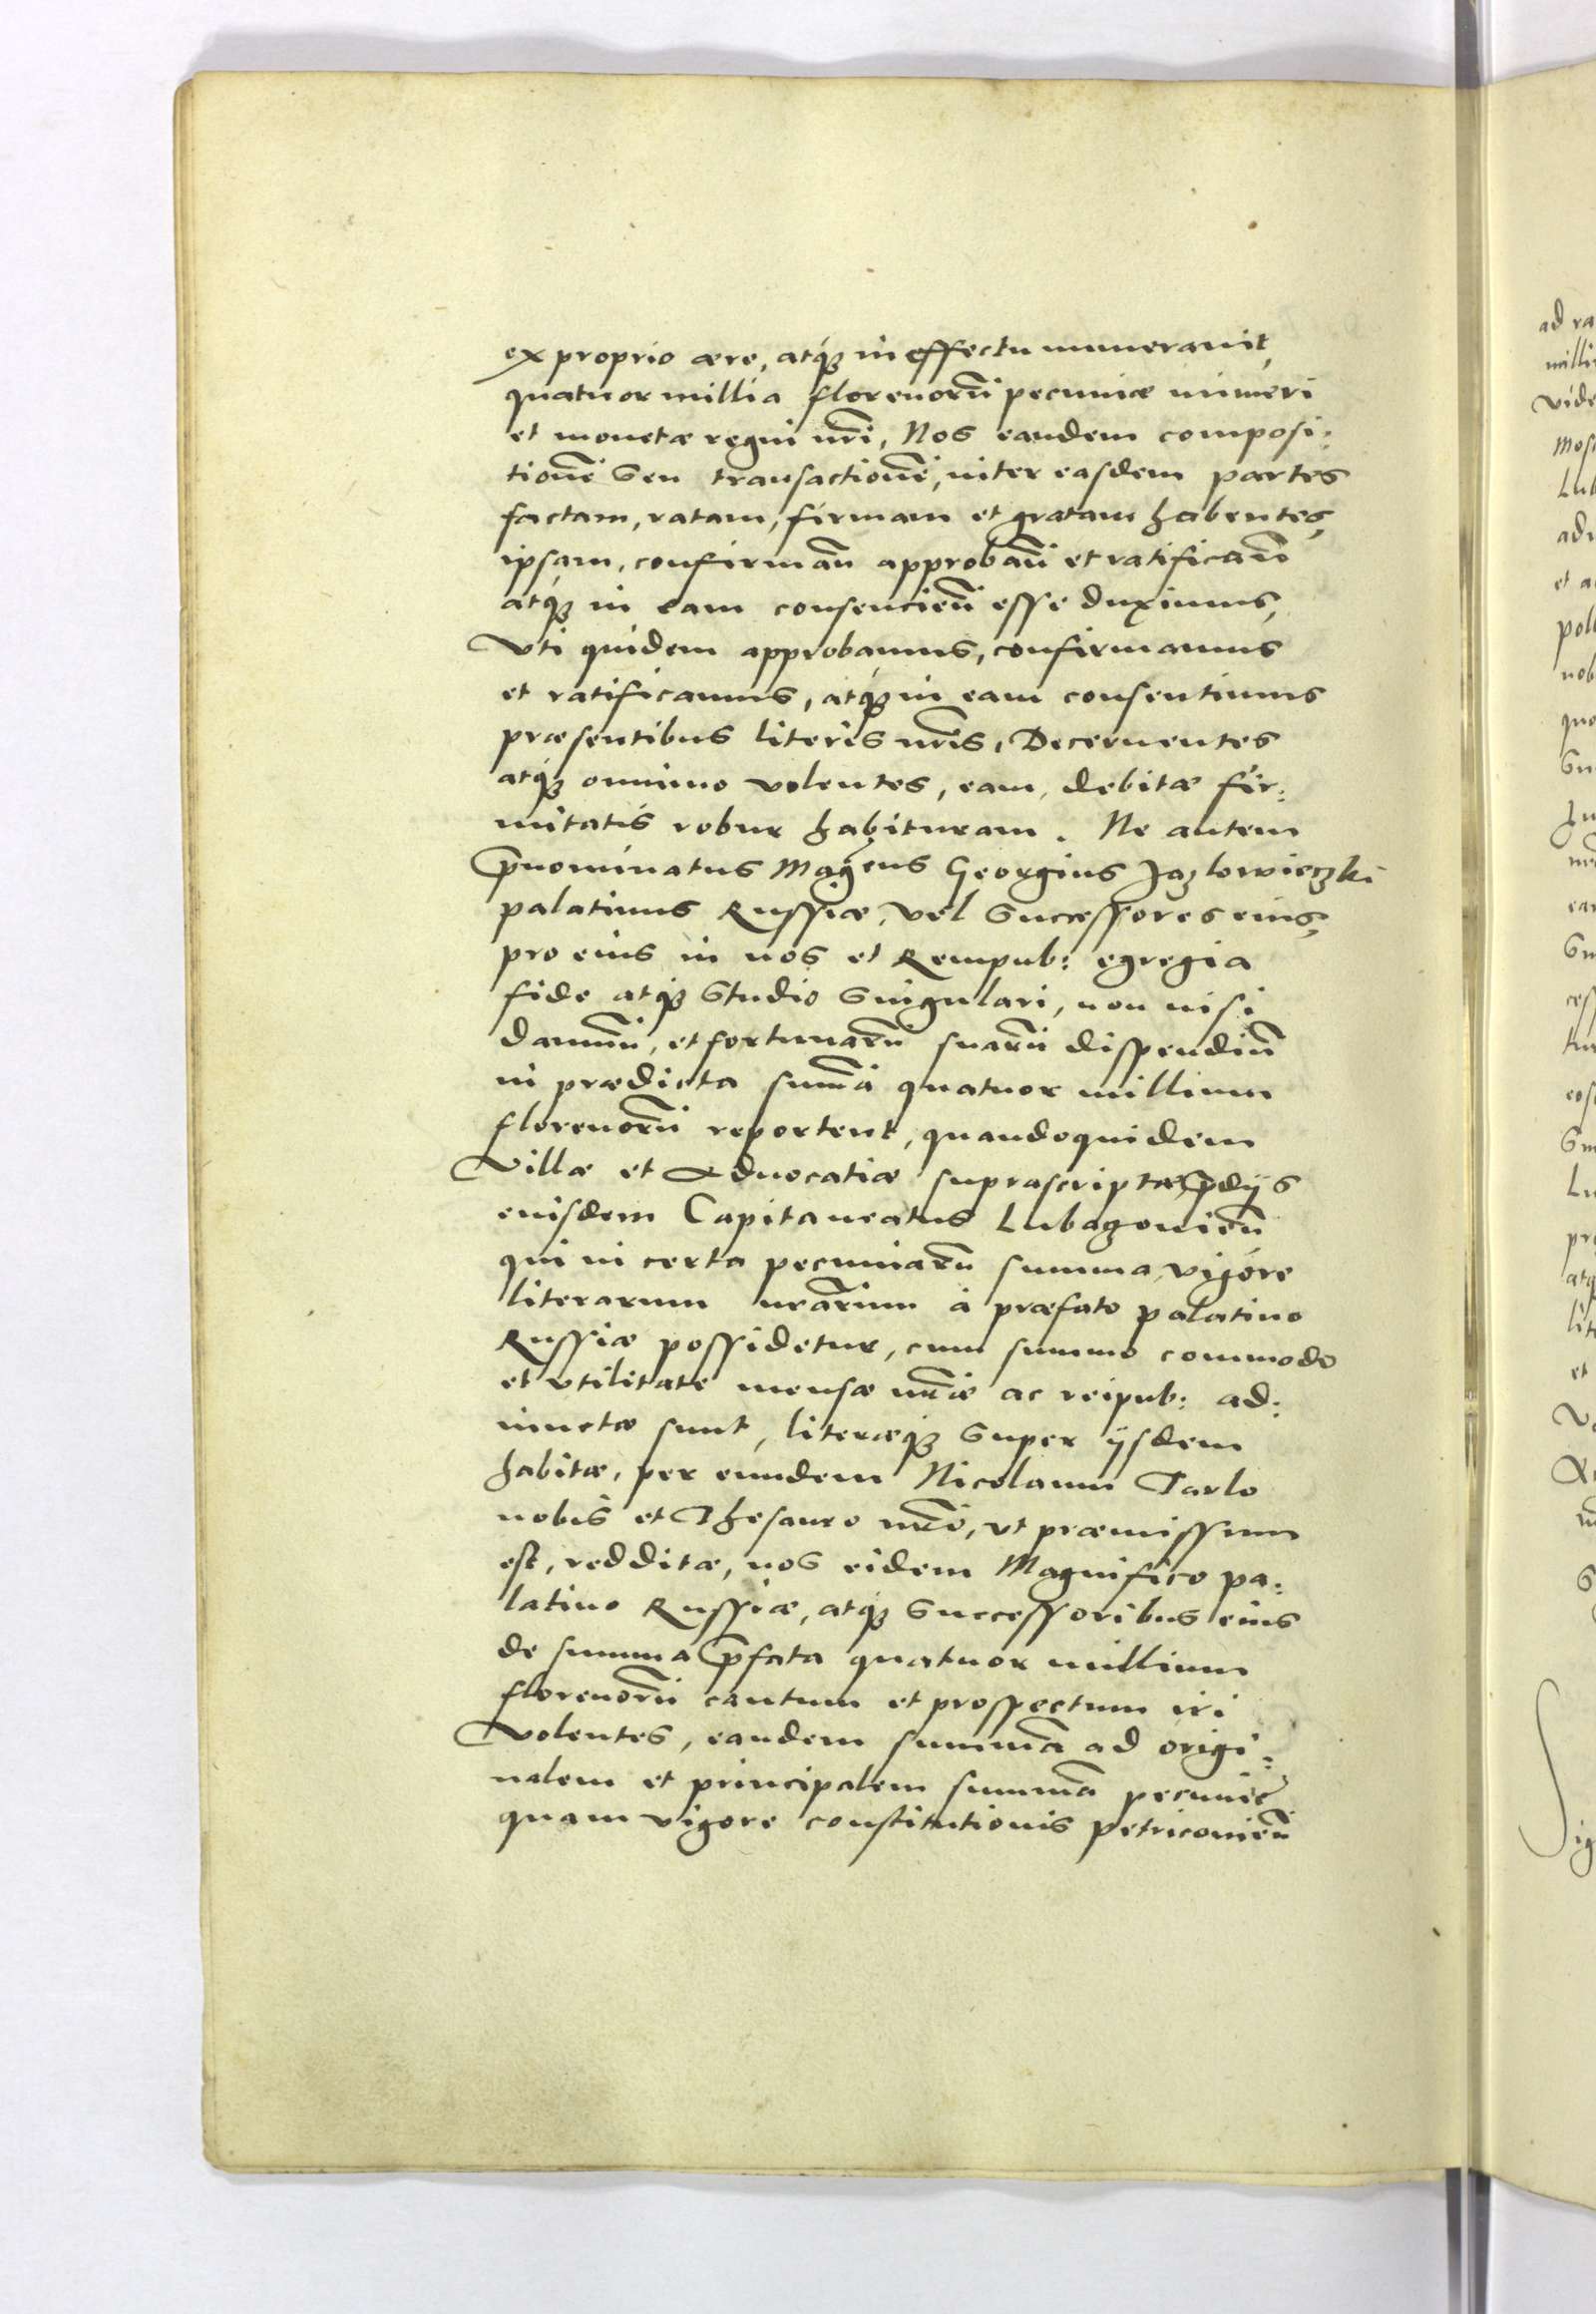 ex proprio aere, atq₃ in effectu numeravit,
quatuor millia florenorū pecuniæ numeri
et monetæ regni nr̄i, Nos eandem composi:
tionē seu transactionē, inter easdem partes
factam, ratam, firmam et gratam habentes,
ipsam, confirmañ approbañ et ratificañ
atq₃ in eam conscencieñ esse duximus,
Vti quidem approbamus, confirmamus
et ratificamus, atq₃ in eam consentimus
præsentibus literis nr̄is, Decernentes
atq₃ omnino volentes, eam, debitæ fir:
mitatis robur habituram. Ne autem
p̄nominatus Mag̃cus Georgius Jazlowieczki
palatinus Russiæ, vel successores eius,
pro eius in nos et Rempub: egregia
fide atq₃ studio singulari, non nisi
damnū, et fortunarū suarū dispendiū
in prædicta sum̄a quatuor millium
florenorū reportent, quandoquidem
Villæ et Advocatiæ suprascriptæ, p̄dijs
eiusdem Capitaneatus Lubaczovieñ
qui in certa pecuniarū summa, vigore
literarum nr̄arum à præfato palatino
Russiæ possidetur, cum summo commodo
et vtilitate mensæ nr̄æ ac reipub: ad:
iunctæ sunt, literæq₃ super ijsdem
habitæ, per eundem Nicolaum Tarlo
nobis et Thesauro nr̄o, vt præmissum
est, redditæ, nos eidem Magnifico pa:
latino Russiæ, atq₃ successoribus eius
de summa p̄fata quatuor millium
florenorū cautum et prospectum iri
volentes, eandem summā ad origi:
nalem et principalem summā pecuniæ
quam vigore constitutionis petricovieñ